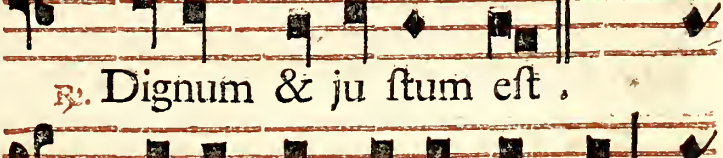 ℟. Dignum & ju ſtum eſt .